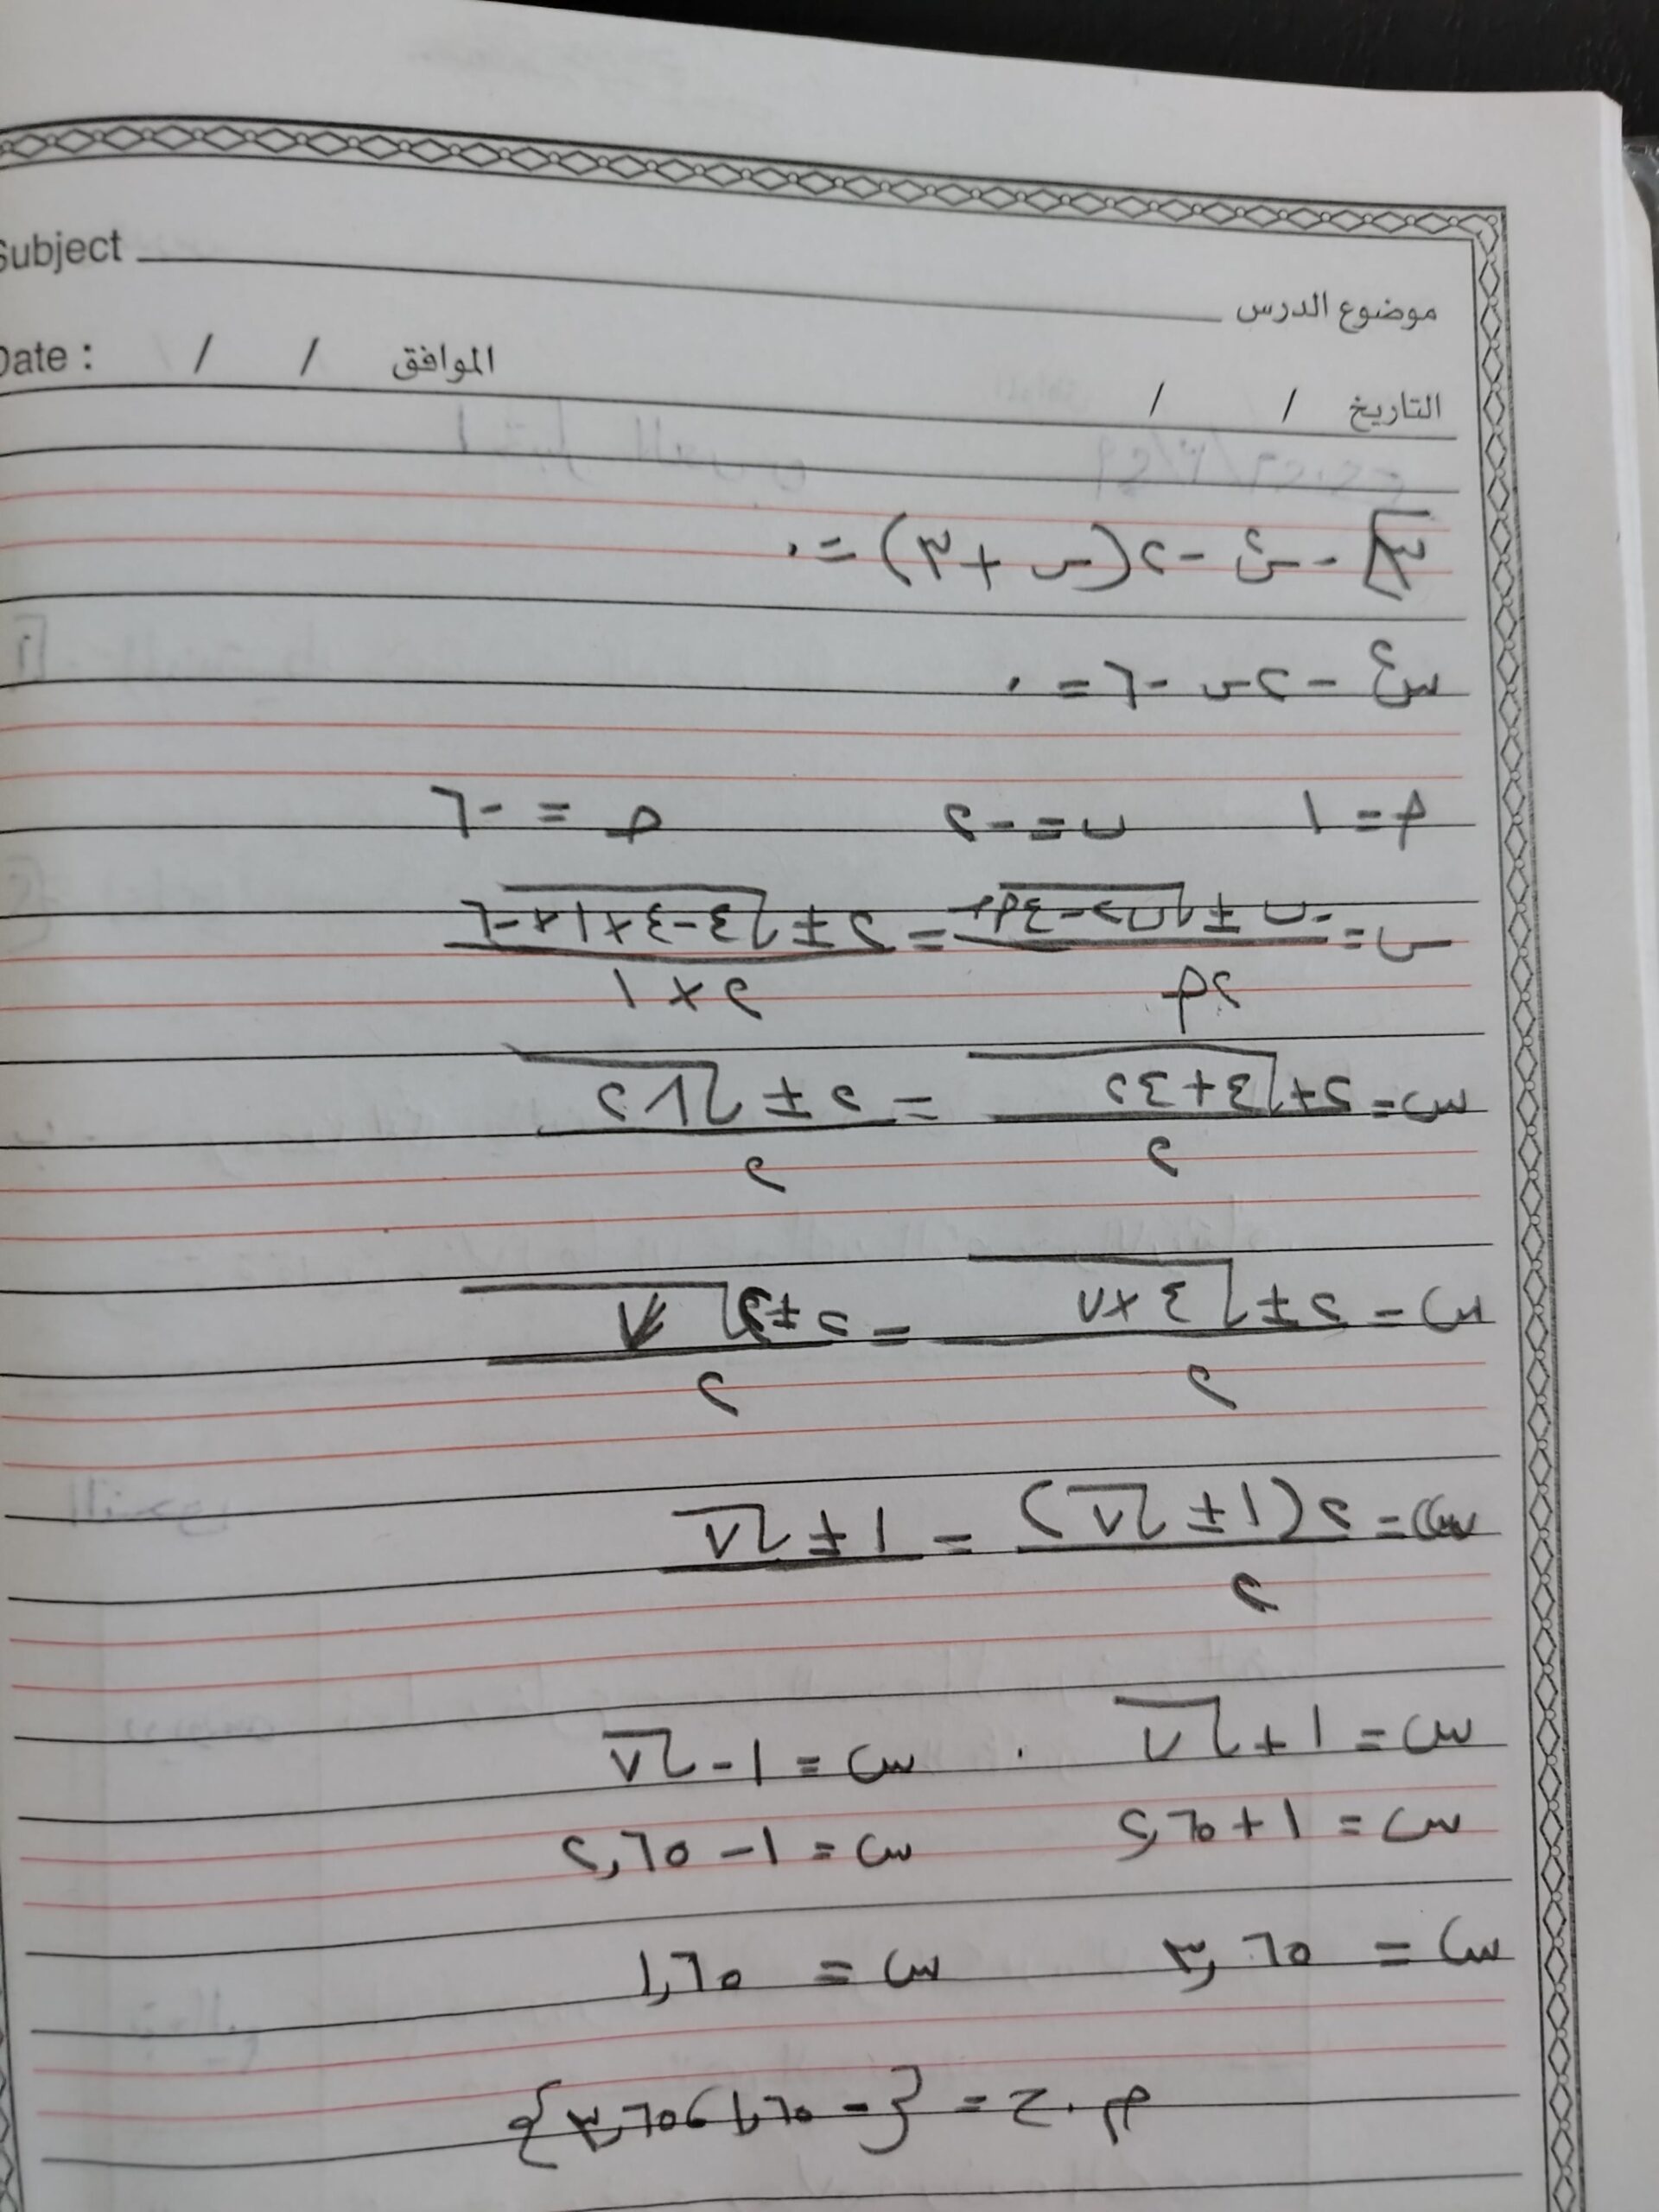 Subject
موضوع الدرس
Date : / / الموافق
التاريخ / /
٣ - س٢ - ٢(س + ٣) = ٠
س٢ - ٢س - ٦ = ٠
أ = ١ ب = -٢ ج = -٦
س = (-ب ± √(ب٢ - ٤أج)) / ٢أ = (٢ ± √(٤ - ٤ × ١ × -٦)) / (٢ × ١)
س = (٢ ± √(٤ + ٢٤)) / ٢ = (٢ ± √٢٨) / ٢
س = (٢ ± √(٤ × ٧)) / ٢ = (٢ ± ٢√٧) / ٢
س = ٢(١ ± √٧) / ٢ = ١ ± √٧
س = ١ + √٧ ، س = ١ - √٧
س = ١ + ٢,٦٥ س = ١ - ٢,٦٥
س = ٣,٦٥ س = ١,٦٥
م.ح = {-١,٦٥ ، ٣,٦٥}